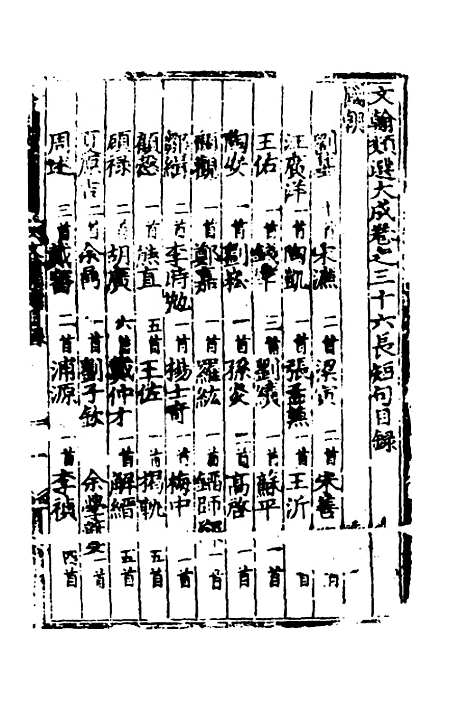 文翰類選大成卷之三十六長短句目錄
國朝
劉基 首 宋濂 二首 梁寅 一首 朱善 首
汪廣洋 一首 陶凱 一首 張孟兼 一首 王沂 首
王佑 首 錢宰 三首 劉 一首 蘇平 一首
陶安 一首 劉崧 一首 孫炎 一首 高啓 一首
觀 一首 鄭嘉 一首 羅紘 一首 師 一首
鄒緝 二首 李時勉 一首 楊士奇 一首 梅中 一首
顧愨 一首 熊直 五首 王佐 一首 楊軌 五首
顧祿 二首 胡廣 六首 戴仲才 一首 解縉 五首
夏原吉 二首 余 一首 劉子欽 余學夔 一首
周述 三首 戴 二首 浦源 一首 李禎 四首